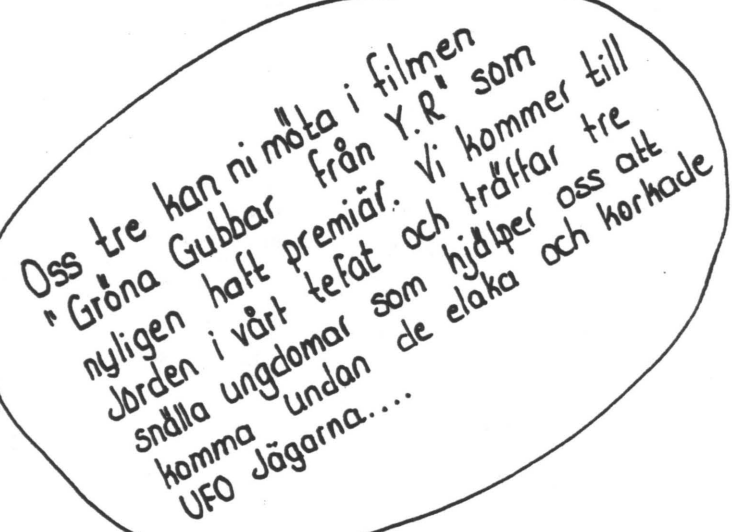 Oss tre kan ni möta i filmen
"Gröna Gubbar från Y.R" som
nyligen haft premiär. Vi kommer till
Jorden i vårt tefat och träffar tre
snälla ungdomar som hjälper oss att
komma undan de elaka och korkade
UFO Jägarna....